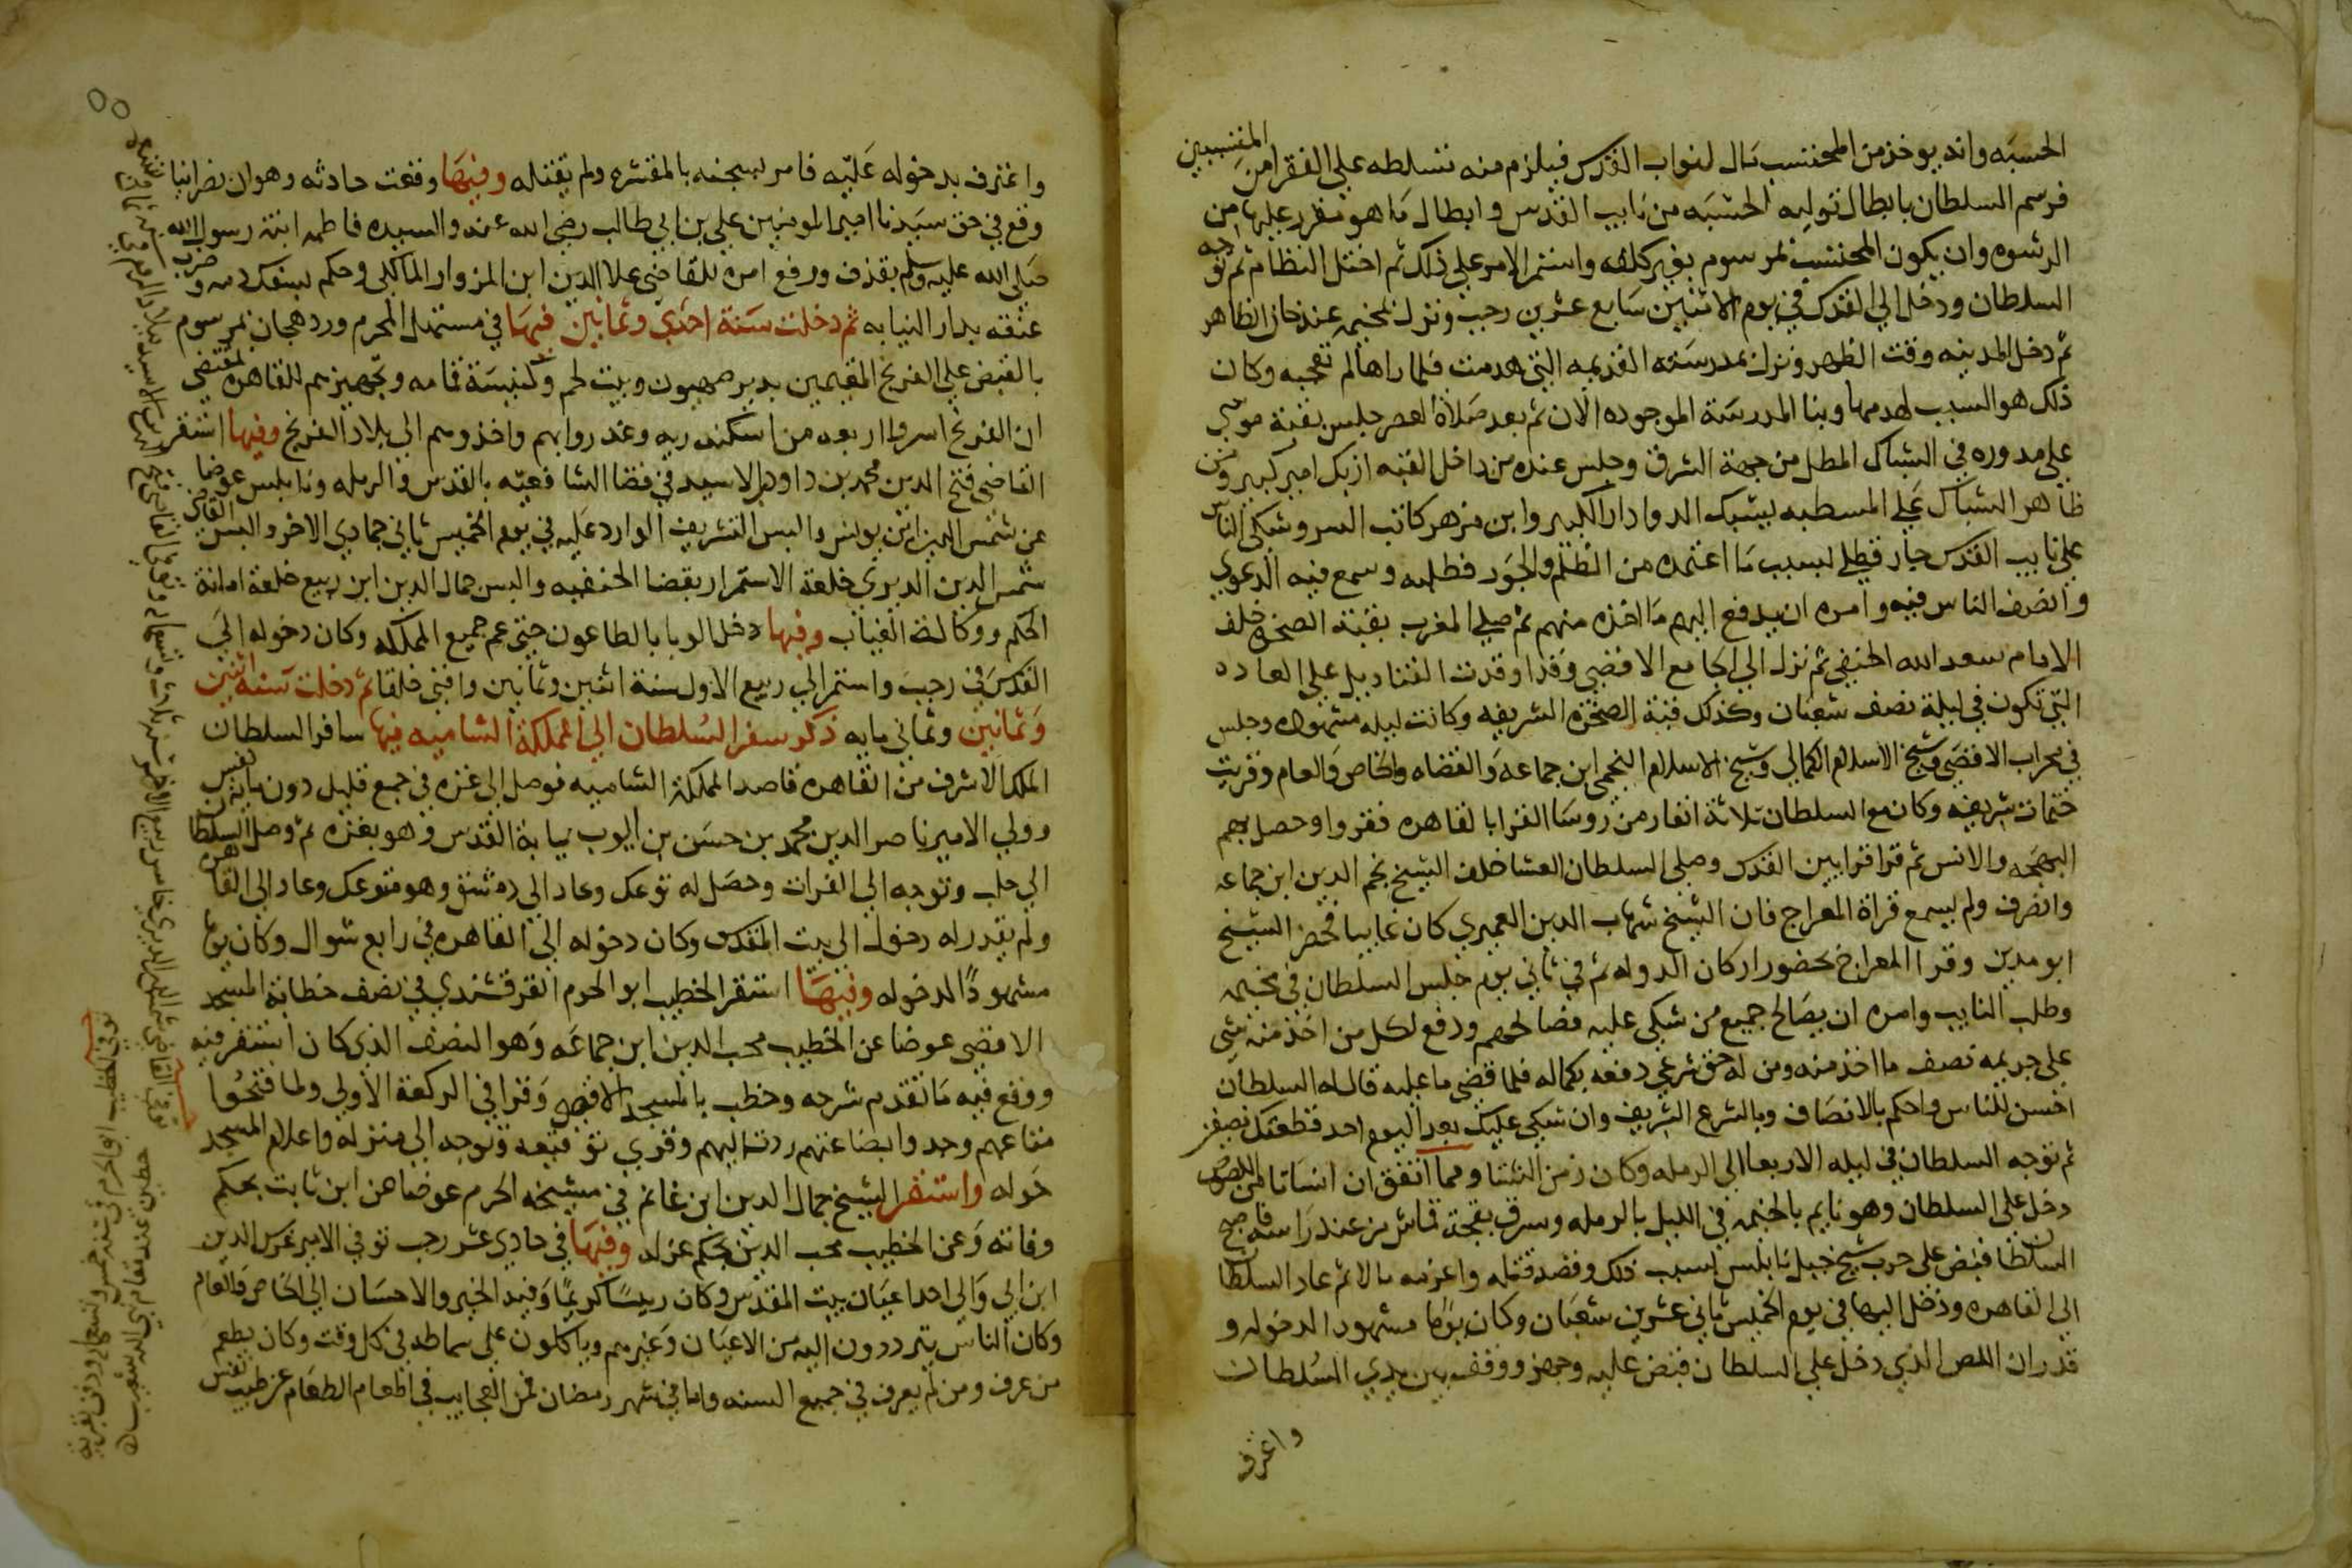 الحسبه وانه يوخذ من المحتسب مال لنواب القدس فيلزم منه تسلطه علي الفقرا من المتسببين
فرسم السلطان بابطال توليه الحسبه من نايب القدس وابطال ما هو مقرر عليها من
الرشوه وان يكون المحتسب بمرسوم بغير كلفه واستمر الامر علي ذلك ثم اختل النظام ثم توجه
السلطان ودخل الي القدس في يوم الاثنين سابع عشرين رجب ونزل بمخيمه عند خان الظاهر
ثم دخل المدينه وقت الظهر ونزل بمدرسته القديمه التي هدمت فلما راها لم تعجبه وكان
ذلك هو السبب لهدمها وبنا المدرسة الموجوده الان ثم بعد صلاة العصر جلس بقبة موسي
علي مدوره في الشباك المطل من جهة الشرق وجلس عنده من داخل القبه ازبك امير كبير ومن
ظاهر الشباك علي المسطبه يشبك الدوادار الكبير وابن مزهر كاتب السر وشكي الناس
علي نايب القدس جار قطلي بسبب ما اعتمده من الظلم والجور فطلبه وسمع فيه الدعوي
وانصف الناس فيه وامره ان يدفع اليهم ما اخذه منهم ثم صلي المغرب بقبة الصخره خلف
الامام سعد الله الحنفي ثم نزل الي الجامع الاقصي وقد اوقدت القناديل علي العاده
التي تكون في ليلة نصف شعبان وكذلك قبة الصخرة الشريفه وكانت ليله مشهوده وجلس
في محراب الاقصي وشيخ الاسلام الكمالي وشيخ الاسلام النجمي ابن جماعه والقضاه والخاص والعام وقريت
ختمات شريفه وكان مع السلطان ثلاثة انفار من روسا القرا بالقاهره فقروا وحصل بهم
البهجه والانس ثم قرا قرا بيت القدس وصلي السلطان العشا خلف الشيخ نجم الدين ابن جماعه
وانصرف ولم يسمع قراة المعراج فان الشيخ شهاب الدين العميري كان غايبا فحضر الشيخ
ابو مدين وقرا المعراج بحضور اركان الدوله ثم في ثاني يوم جلس السلطان في مخيمه
وطلب النايب وامره ان يصالح جميع من شكي عليه فصالحهم ودفع لكل من اخذ منه شي
علي جريمه نصف ما اخذ منه ومن له حق شرعي دفعه بكماله فلما قضي ما عليه قال له السلطان
احسن للناس واحكم بالانصاف وبالشرع الشريف وان شكي عليك بعد اليوم احد قطعتك نصفين
ثم توجه السلطان في ليله الاربعا الي الرمله وكان زمن الشتا ومما اتفق ان انسانا من اللصوص
دخل علي السلطان وهو نايم بالخيمه في الليل بالرمله وسرق بقجة قماش من عند راسه فاصبح
السلطان قبض علي حرب شيخ جبل نابلس بسبب ذلك وقصد قتله واغرمه مالا ثم عاد السلطان
الي القاهره ودخل اليها في يوم الخميس ثاني عشرين شعبان وكان يوما مشهودا لدخوله و
قدر ان اللص الذي دخل علي السلطان قبض عليه وجهز ووقف بين يدي السلطان
واعترف
٥٥
واعترف بدخوله عليه فامر بسجنه بالمقشره ولم يقتله وفيها وقعت حادثه وهو ان نصرانيا
وقع في حق سيدنا امير المومنين علي بن ابي طالب رضي الله عنه والسيده فاطمه ابنة رسول الله
صلي الله عليه وسلم بقذف ورفع امره للقاضي علا الدين ابن المزوار المالكي وحكم بسفك دمه وضرب
عنقه بدار النيابه ثم دخلت سنة احدي وثمانين فيها في مستهل المحرم ورد هجان بمرسوم
بالقبض علي الفرنج المقيمين بدير صهيون وبيت لحم وكنيسة قمامه وتجهيزهم للقاهره بمقتضي
ان الفرنج اسروا اربعه من اسكندريه وغدروا بهم واخذوهم الي بلاد الفرنج وفيها استقر
القاضي فتح الدين محمد بن داود الاسيد في قضا الشافعيه بالقدس والرمله ونابلس عوضا
عن شمس الدين ابن يونس والبس التشريف الوارد عليه في يوم الخميس ثاني جمادي الاخر والبس القاضي
شمس الدين الديري خلعة الاستمرار بقضا الحنفيه والبس جمال الدين ابن ربيع خلعة امانة
الحكم ووكالة الغياب وفيها دخل الوبا بالطاعون حتي عم جميع المملكه وكان دخوله الي
القدس في رجب واستمر الي ربيع الاول سنة اثنين وثمانين وافني خلقا ثم دخلت سنه اثنين
وثمانين وثماني مايه ذكر سفر السلطان الي المملكة الشاميه فيها سافر السلطان
الملك الاشرف من القاهره قاصدا المملكة الشاميه فوصل الي غزه في جمع قليل دون ماية نفس
وولي الامير ناصر الدين محمد بن حسن بن ايوب نيابة القدس وهو بغزه ثم وصل السلطان
الي حلب وتوجه الي الفرات وحصل له توعك وعاد الي دمشق وهو متوعك وعاد الي القاهره
ولم يقدر له دخول الي بيت المقدس وكان دخوله الي القاهره في رابع شوال وكان يوما
مشهودا لدخوله وفيها استقر الخطيب ابو الحرم القرقشندي في نصف خطابة المسجد
الاقصي عوضا عن الخطيب محب الدين ابن جماعه وهو النصف الذي كان استقر فيه
ووقع فيه ما تقدم شرحه وخطب بالمسجد الاقصي وقرا في الركعة الاولي ولما فتحوا
متاعهم وجدوا بضاعتهم ردت اليهم وقري توقيعه وتوجه الي منزله واعلام المسجد
حوله واستقر الشيخ جمال الدين ابن غانم في مشيخه الحرم عوضا عن ابن ثابت بحكم
وفاته وعن الخطيب محب الدين بحكم عزله وفيها في حادي عشر رجب توفي الامير غرس الدين
ابن ابي والي احد اعيان بيت المقدس وكان ريسا كريما وفيه الخير والاحسان الي الخاص والعام
وكان الناس يترددون اليه من الاعيان وغيرهم وياكلون علي سماطه في كل وقت وكان يطعم
من عرف ومن لم يعرف في جميع السنه واما في شهر رمضان فمن العجايب في اطعام الطعام عن طيب نفس